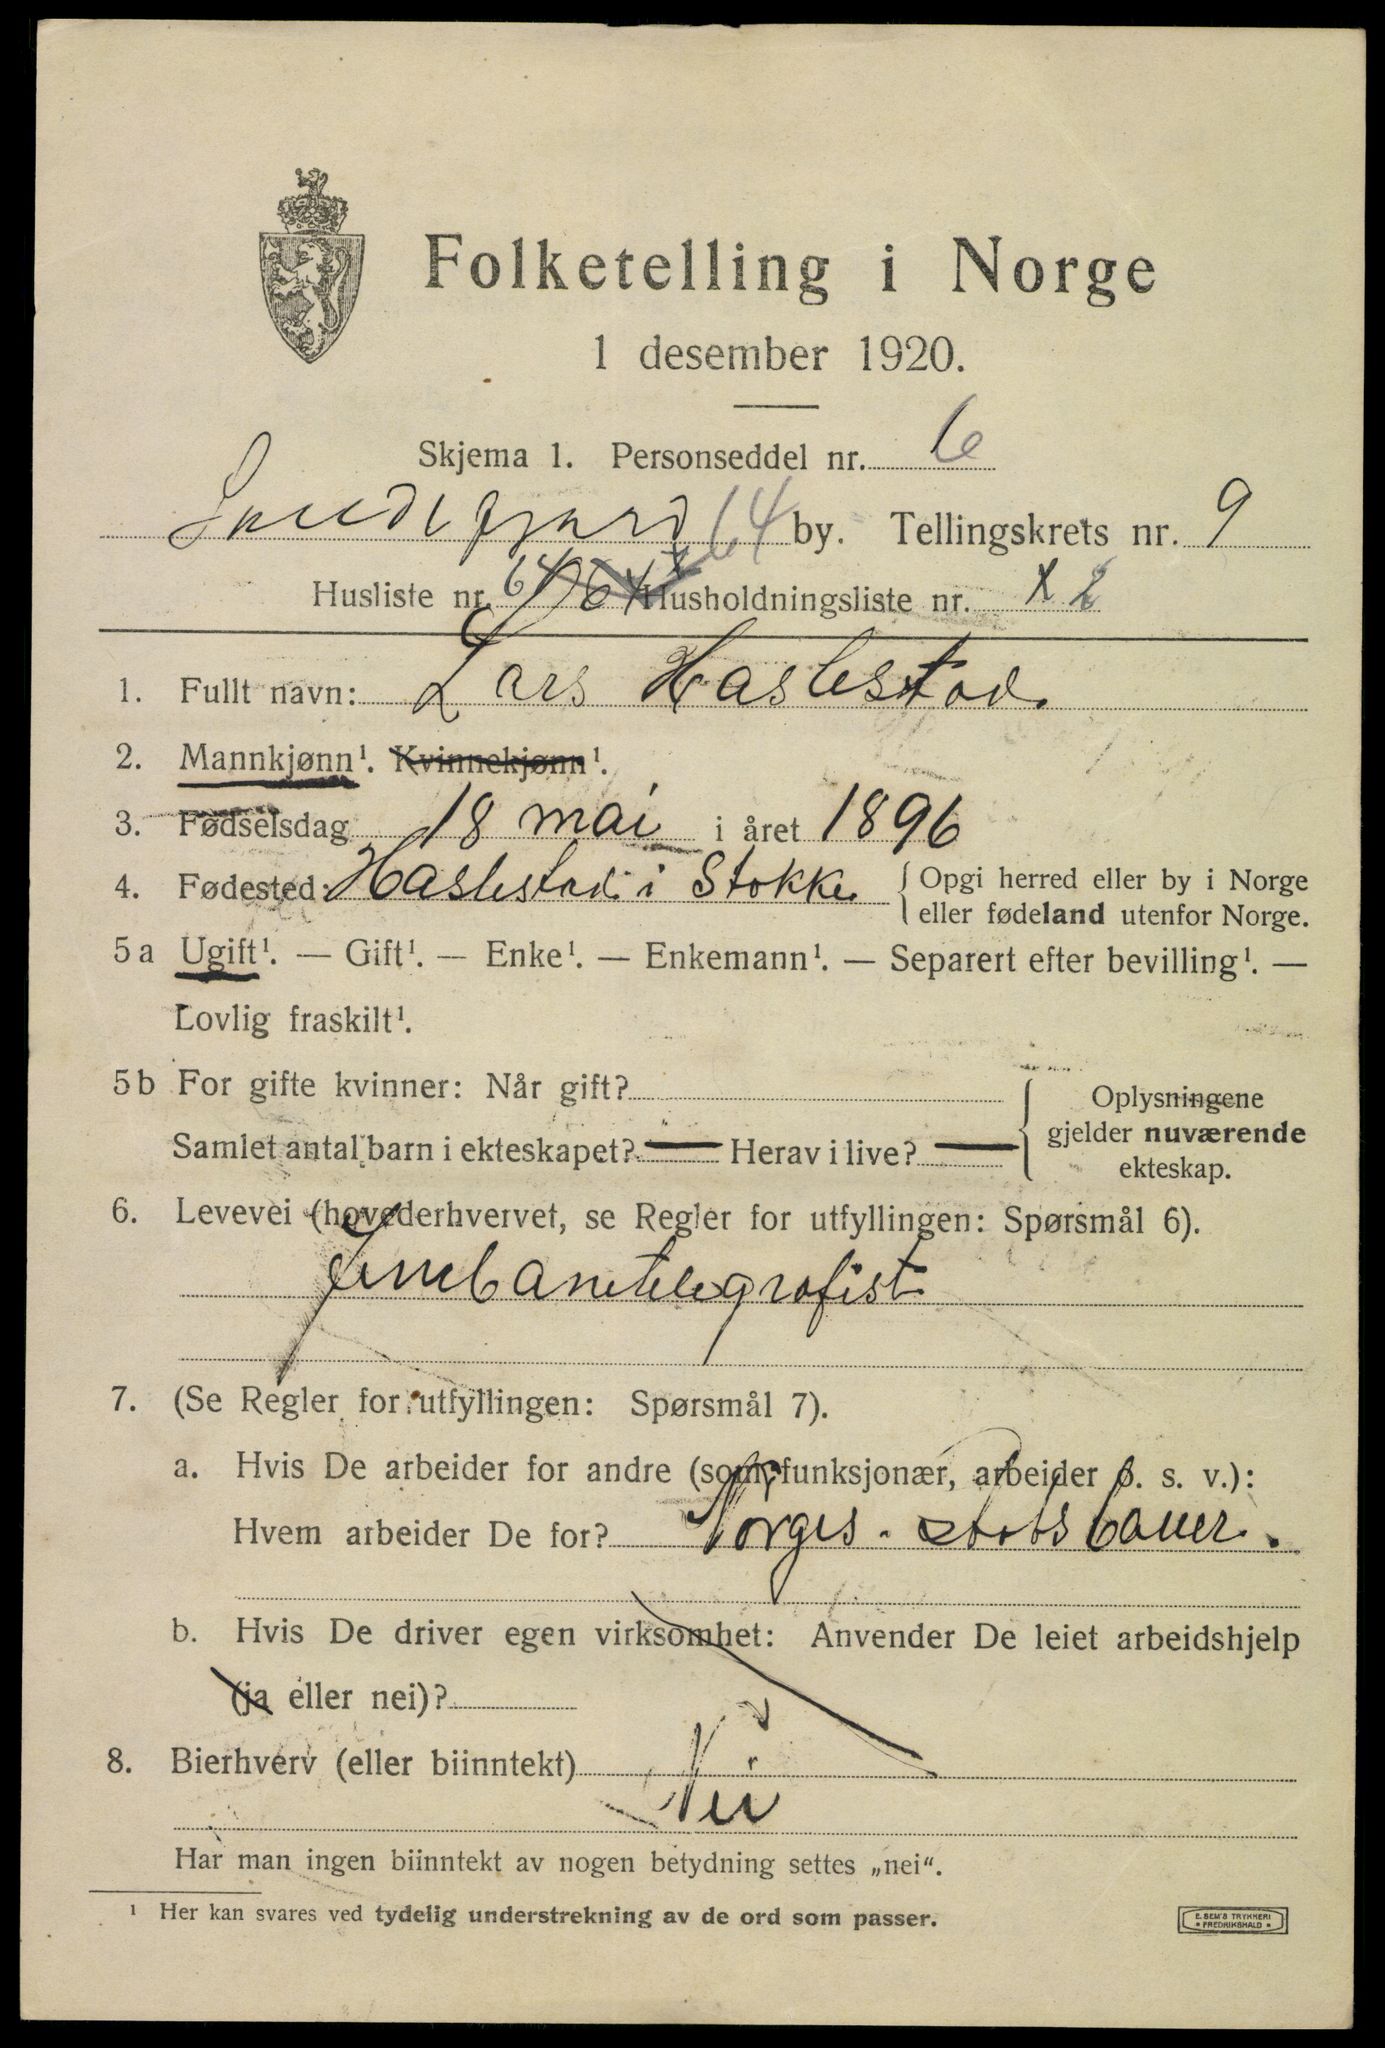 Folketelling i Norge
1 desember 1920.
Skjema 1. Personseddel nr. 6
Sandefjord 64 by. Tellingskrets nr. 9
Husliste nr. 64 Husholdningsliste nr. X 2
1. Fullt navn: Lars Haslestad.
2. Mannkjønn¹. Kvinnekjønn¹.
3. Fødselsdag 18 mai i året 1896
4. Fødested: Haslestad i Stokke { Opgi herred eller by i Norge
eller fødeland utenfor Norge.
5 a Ugift¹. — Gift¹. — Enke¹. — Enkemann¹. — Separert efter bevilling¹. —
Lovlig fraskilt¹.
5 b For gifte kvinner: Når gift?
Samlet antal barn i ekteskapet? — Herav i live? —
{ Oplysningene
gjelder nuværende
ekteskap.
6. Levevei (hovederhvervet, se Regler for utfyllingen: Spørsmål 6).
Jernbanetelegrafist
7. (Se Regler for utfyllingen: Spørsmål 7).
a. Hvis De arbeider for andre (som funksjonær, arbeider o. s. v.):
Hvem arbeider De for? Norges. statsbaner.
b. Hvis De driver egen virksomhet: Anvender De leiet arbeidshjelp
(ja eller nei)?
8. Bierhverv (eller biinntekt)
Nei
Har man ingen biinntekt av nogen betydning settes „nei“.
¹ Her kan svares ved tydelig understrekning av de ord som passer.
E. SEM'S TRYKKERI
* FREDRIKSHALD *